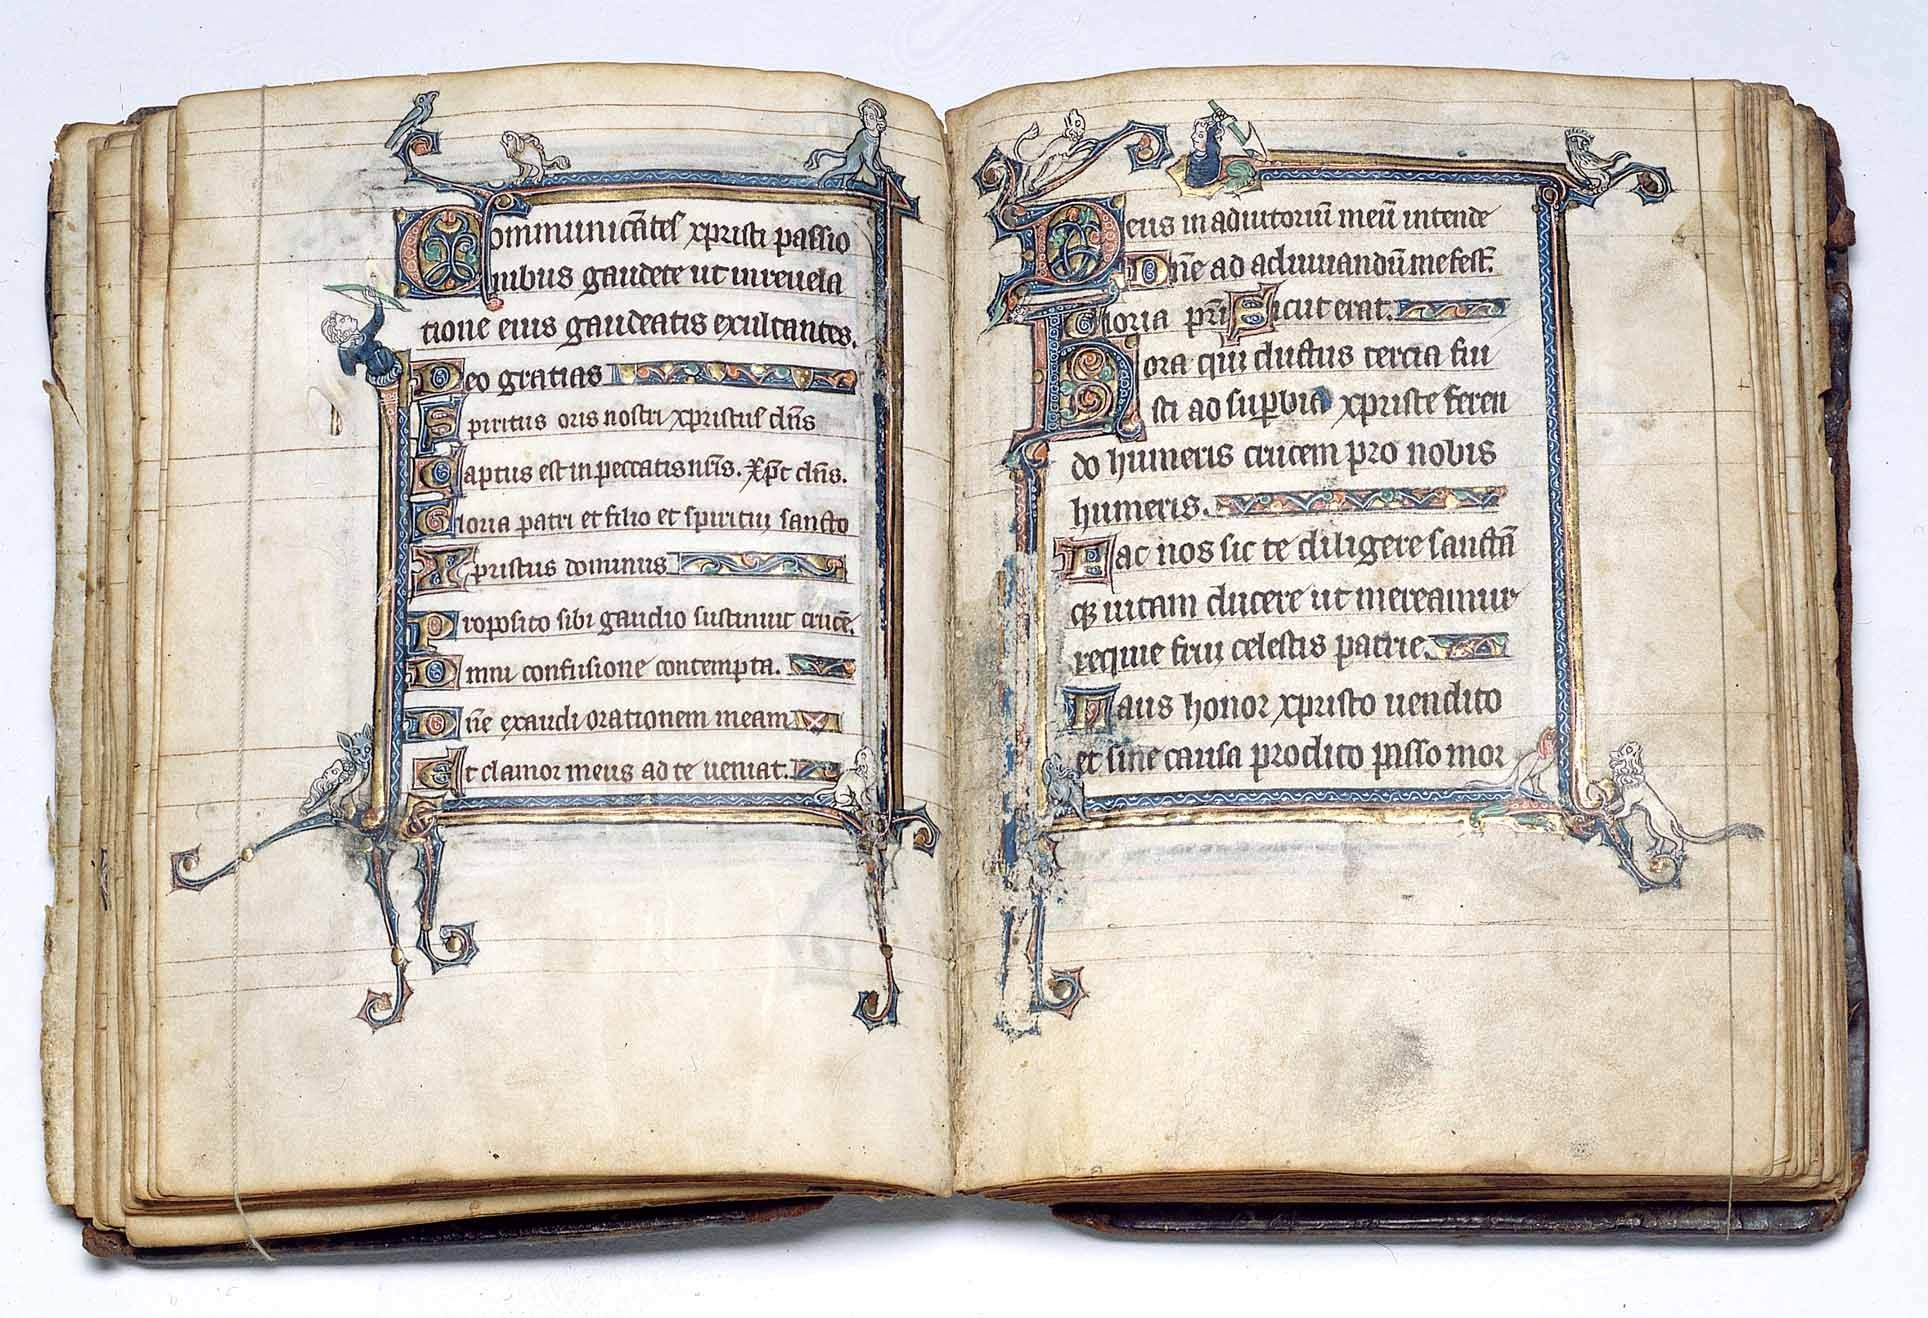 Communicãtes xpristi passio
nibus gaudete ut in reuela
tione eius gaudeatis exultantes.
Deo gratias
Spiritus oris nostri xpristus dñs
Captus est in peccatis nr̃is. Xp̃c dñs.
Gloria patri et filio et spiritui sancto
Xpristus dominus
Proposito sibi gaudio sustinuit crucẽ.
Omni confusione contempta.
Dñe exaudi orationem meam
Et clamor meus ad te ueniat.
Deus in adiutoriũ meũ intende
Dñe ad adiuuandũ me fest̃.
Gloria pr̃i Sicut erat.
Hora qui ductus tercia fui
sti ad sup̱bia xpriste feren
do humeris crucem pro nobis
humeris.
Fac nos sic te diligere sanctã
qz uitam ducere ut mereamur
requie frui celestis patrie.
Laus honor xpristo uendito
et sine causa prodito passo mor